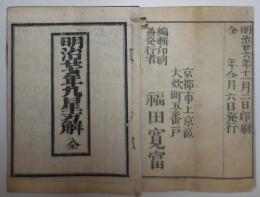 明治廿六年十一月二日印刷
全年全月六日発行
京都市上京區
大炊町五番戸
編輯印刷
兼発行者
福田寛富
明治廿年九星方解 全